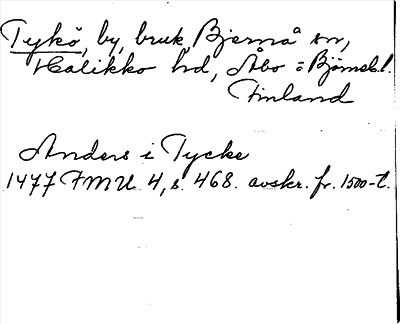 Tykö, by, bruk, Bjernå sn,
Halikko hd, Åbo = Björneb. l.
Finland
Anders i Tycke
1477 FMU 4, s. 468. avskr. fr. 1500-t.